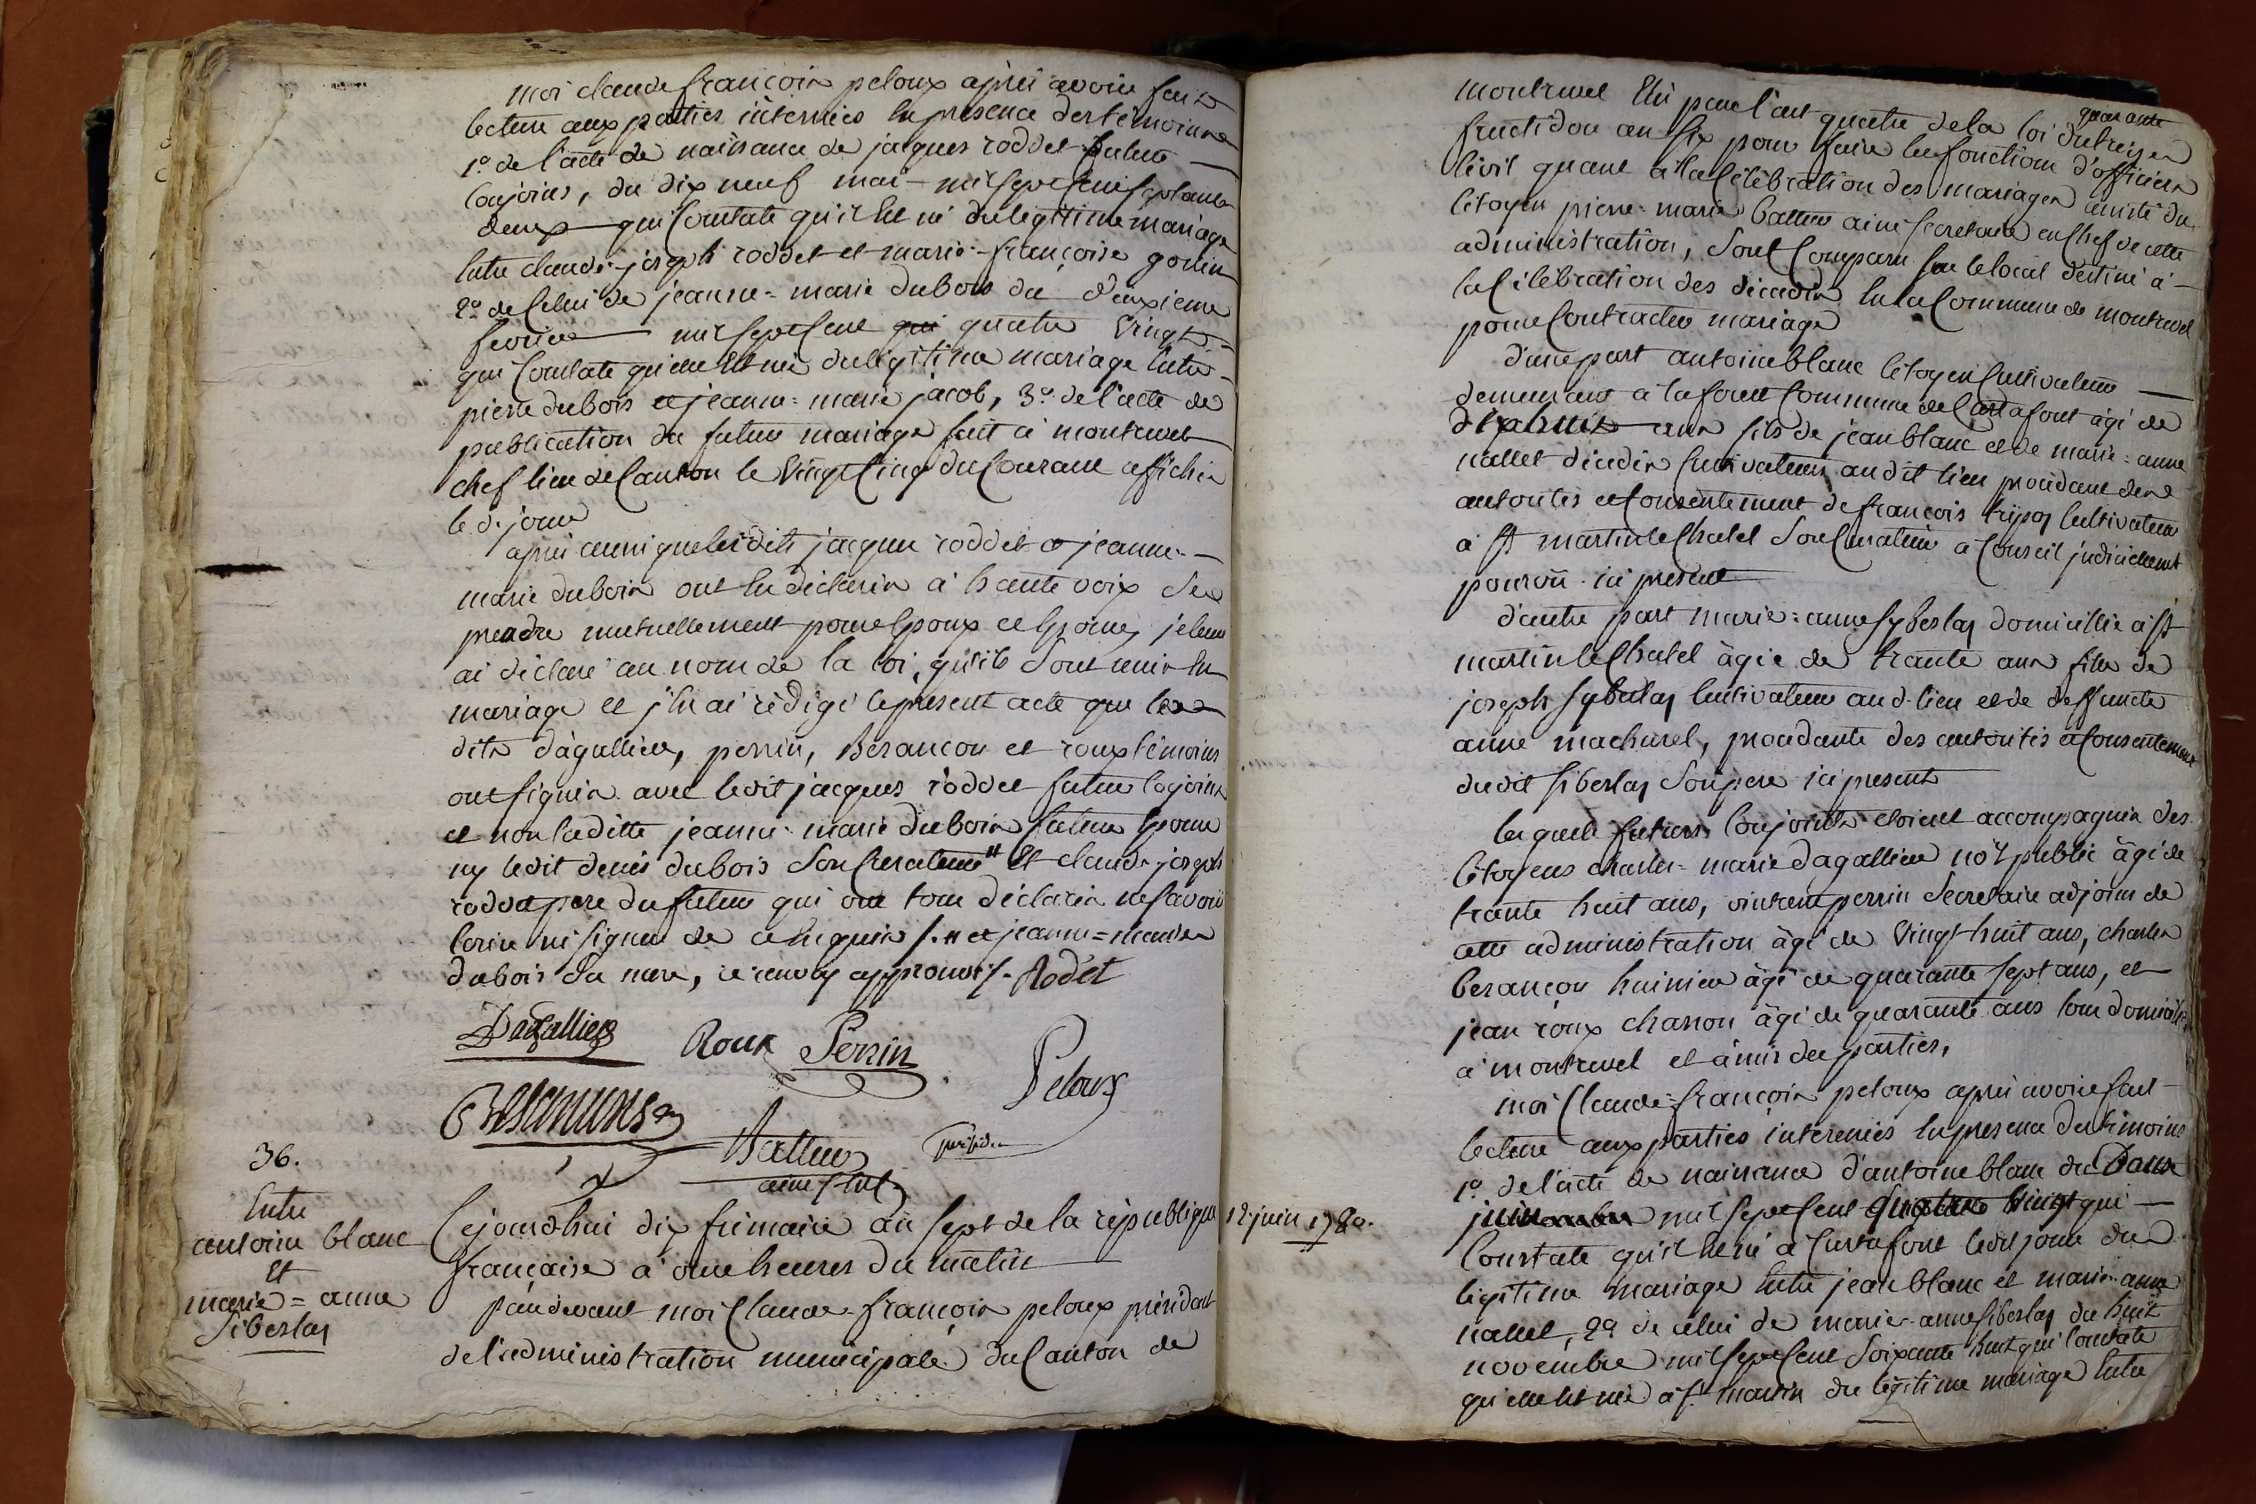 moi claude françois peloux après avoir fait
lecture aux parties interniées en presence des témoins
1º de l'acte de naissance de jacques roddet futur
conjoins, du dix neuf mai mil sept cent septante
deux qui constate qu'il est né du legitime mariage
entre claude-joseph roddet et marie-françoise gonin
2º de celui de jeanne=marie dubois du deuxieme
fevrier mil sept cent qui quatre vingt
qui constate qu'elle est née du legitime mariage entre
pierre dubois et jeanne=marie jacob, 3º de l'acte de
publication du futur mariage fait à montrevel
chef lieu de canton le vingt cinq du courant affichée
le d. jour
après aussi que lesdits jacques roddet et jeanne-
marie dubois ont eu déclarés à haute voix se
prendre mutuellement pour epoux et epouse, je leur
ai déclaré au nom de la loi, qu'ils sont unis en
mariage et j'en ai rédigé le present acte que les
dits dagallier, perrin, besançon et roux témoins
ont signés avec ledit jacques roddet futur cojoins
et non laditte jeanne-marie dubois future epouse
ny ledit denis dubois son curateur # et claude-joseph
roddet pere du futur qui ont tous déclarés ne savoir
ecrire ni signer de ce enquis /. # et jeanne=marie
dubois sa mere, ce renvoy approuvé /. Rodet
Dagallier Roux Perrin
Besançons Peloux
Batteur president
ainé
36.
Entre
antoine blanc
Et
marie=anne
Siberlas
Cejourd'hui dix frimaire an sept de la république
française à onze heures du matin
pardevant moi Claude-françois peloux président
de l'administration municipale du canton de
montrevel élu par l'art quatre de la loi du treize
quarante
fructidor an six pour faire les fonctions d'officier
civil quant à la célébration des mariages assisté du
citoyen pierre-marie batteur ainé secretaire en chef de cette
administration, sont comparu sur le local destiné à
la célébration des décadis en la commune de montrevel
pour contracter mariage
d'une part antoine blanc citoyen cultivateur
demeurant à la foret commune de Curtafont âgé de
dix huit ans fils de jean blanc et de marie=anne
nallet décédés cultivateurs audit lieu procédant des
autorités et consentement de françois cultivateur
à St martin le Chatel son curateur à conseil judiciellement
pourvû ici present
d'autre part marie=anne Syberlas domiciliée à St
martin le Chatel âgée de trante ans fille de
joseph Syberlas cultivateur aud. lieu et de deffuncte
anne machurel, procédante des autorités et consentement
dudit siberlas son pere ici present
lesquels futurs conjoints etoient accompagnés des
citoyens charles-marie dagallier no're public âgé de
trante huit ans, vincent perrin secretaire adjoint de
cette administration âgé de vingt huit ans, charles
besançon huissier âgé de quarante sept ans, et
jean roux charron âgé de quarante ans tous domiciliés
à montrevel et amis des parties,
moi Claude-françois peloux après avoir fait
lecture aux parties interniées en presence des témoins
1º de l'acte de naissance d'antoine blanc du Douze
12. juin 1780.
juin mil sept cent quatre vingt qui
constate qu'il est né à Curtafont ledit jour du
legitime mariage entre jean blanc et marie-anne
nallet, 2º de celui de marie-anne siberlas du huit
novembre mil sept cent soixante huit qui constate
qu'elle est née à St martin du légitime mariage entre